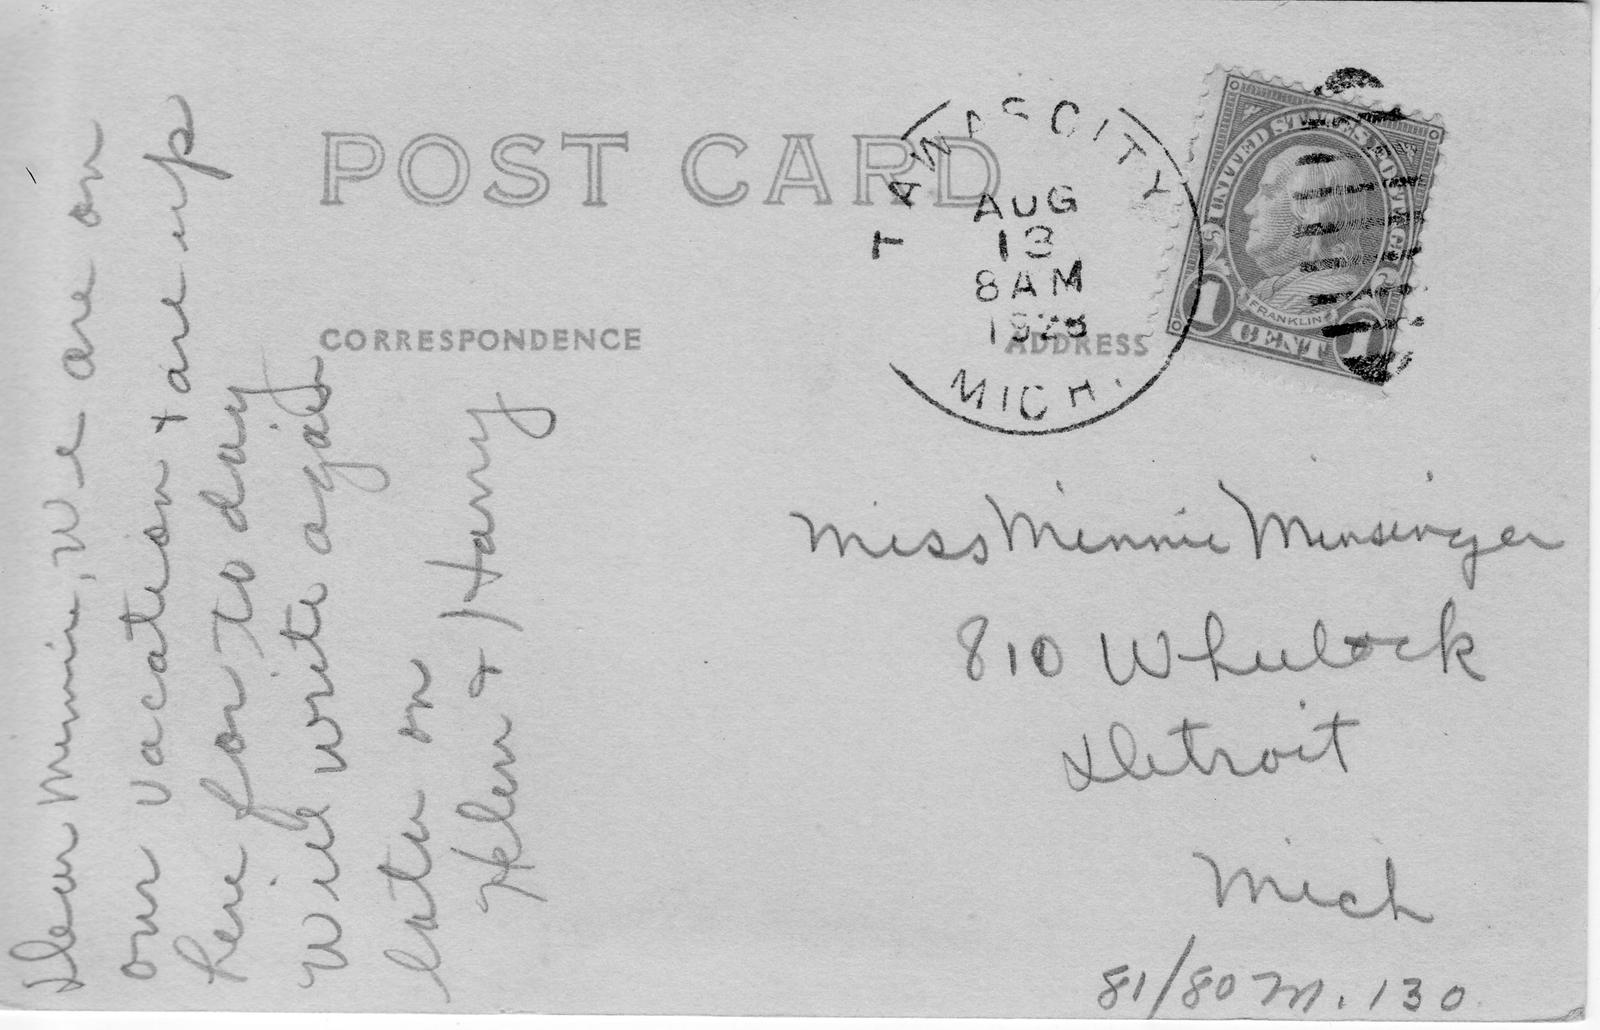 POST CARD
CORRESPONDENCE
ADDRESS
TAWAS CITY
AUG
13
8AM
1928
MICH.
UNITED STATES POSTAGE
FRANKLIN
1 CENT 1
Dear Minnie, We are on
our vacation + are up
here for to day
Will write again
later on
Helen + Harry
Miss Minnie Minsinger
810 Wheelock
Detroit
Mich
81/80 M. 130